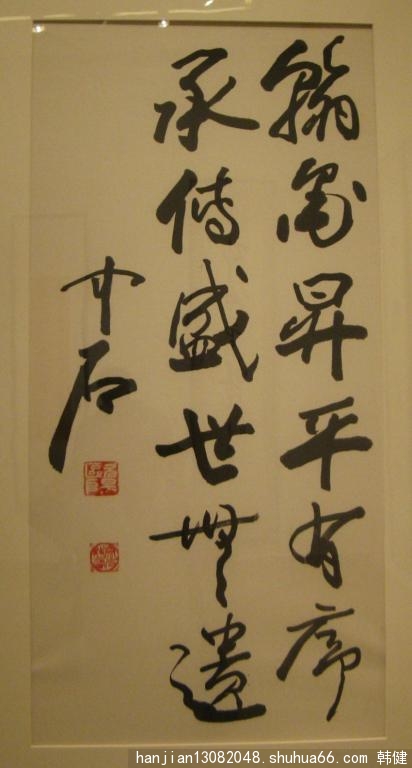 翰昇平有序
承傳盛世無遺
中石
hanjian13082048.shuhua66.com 韩健